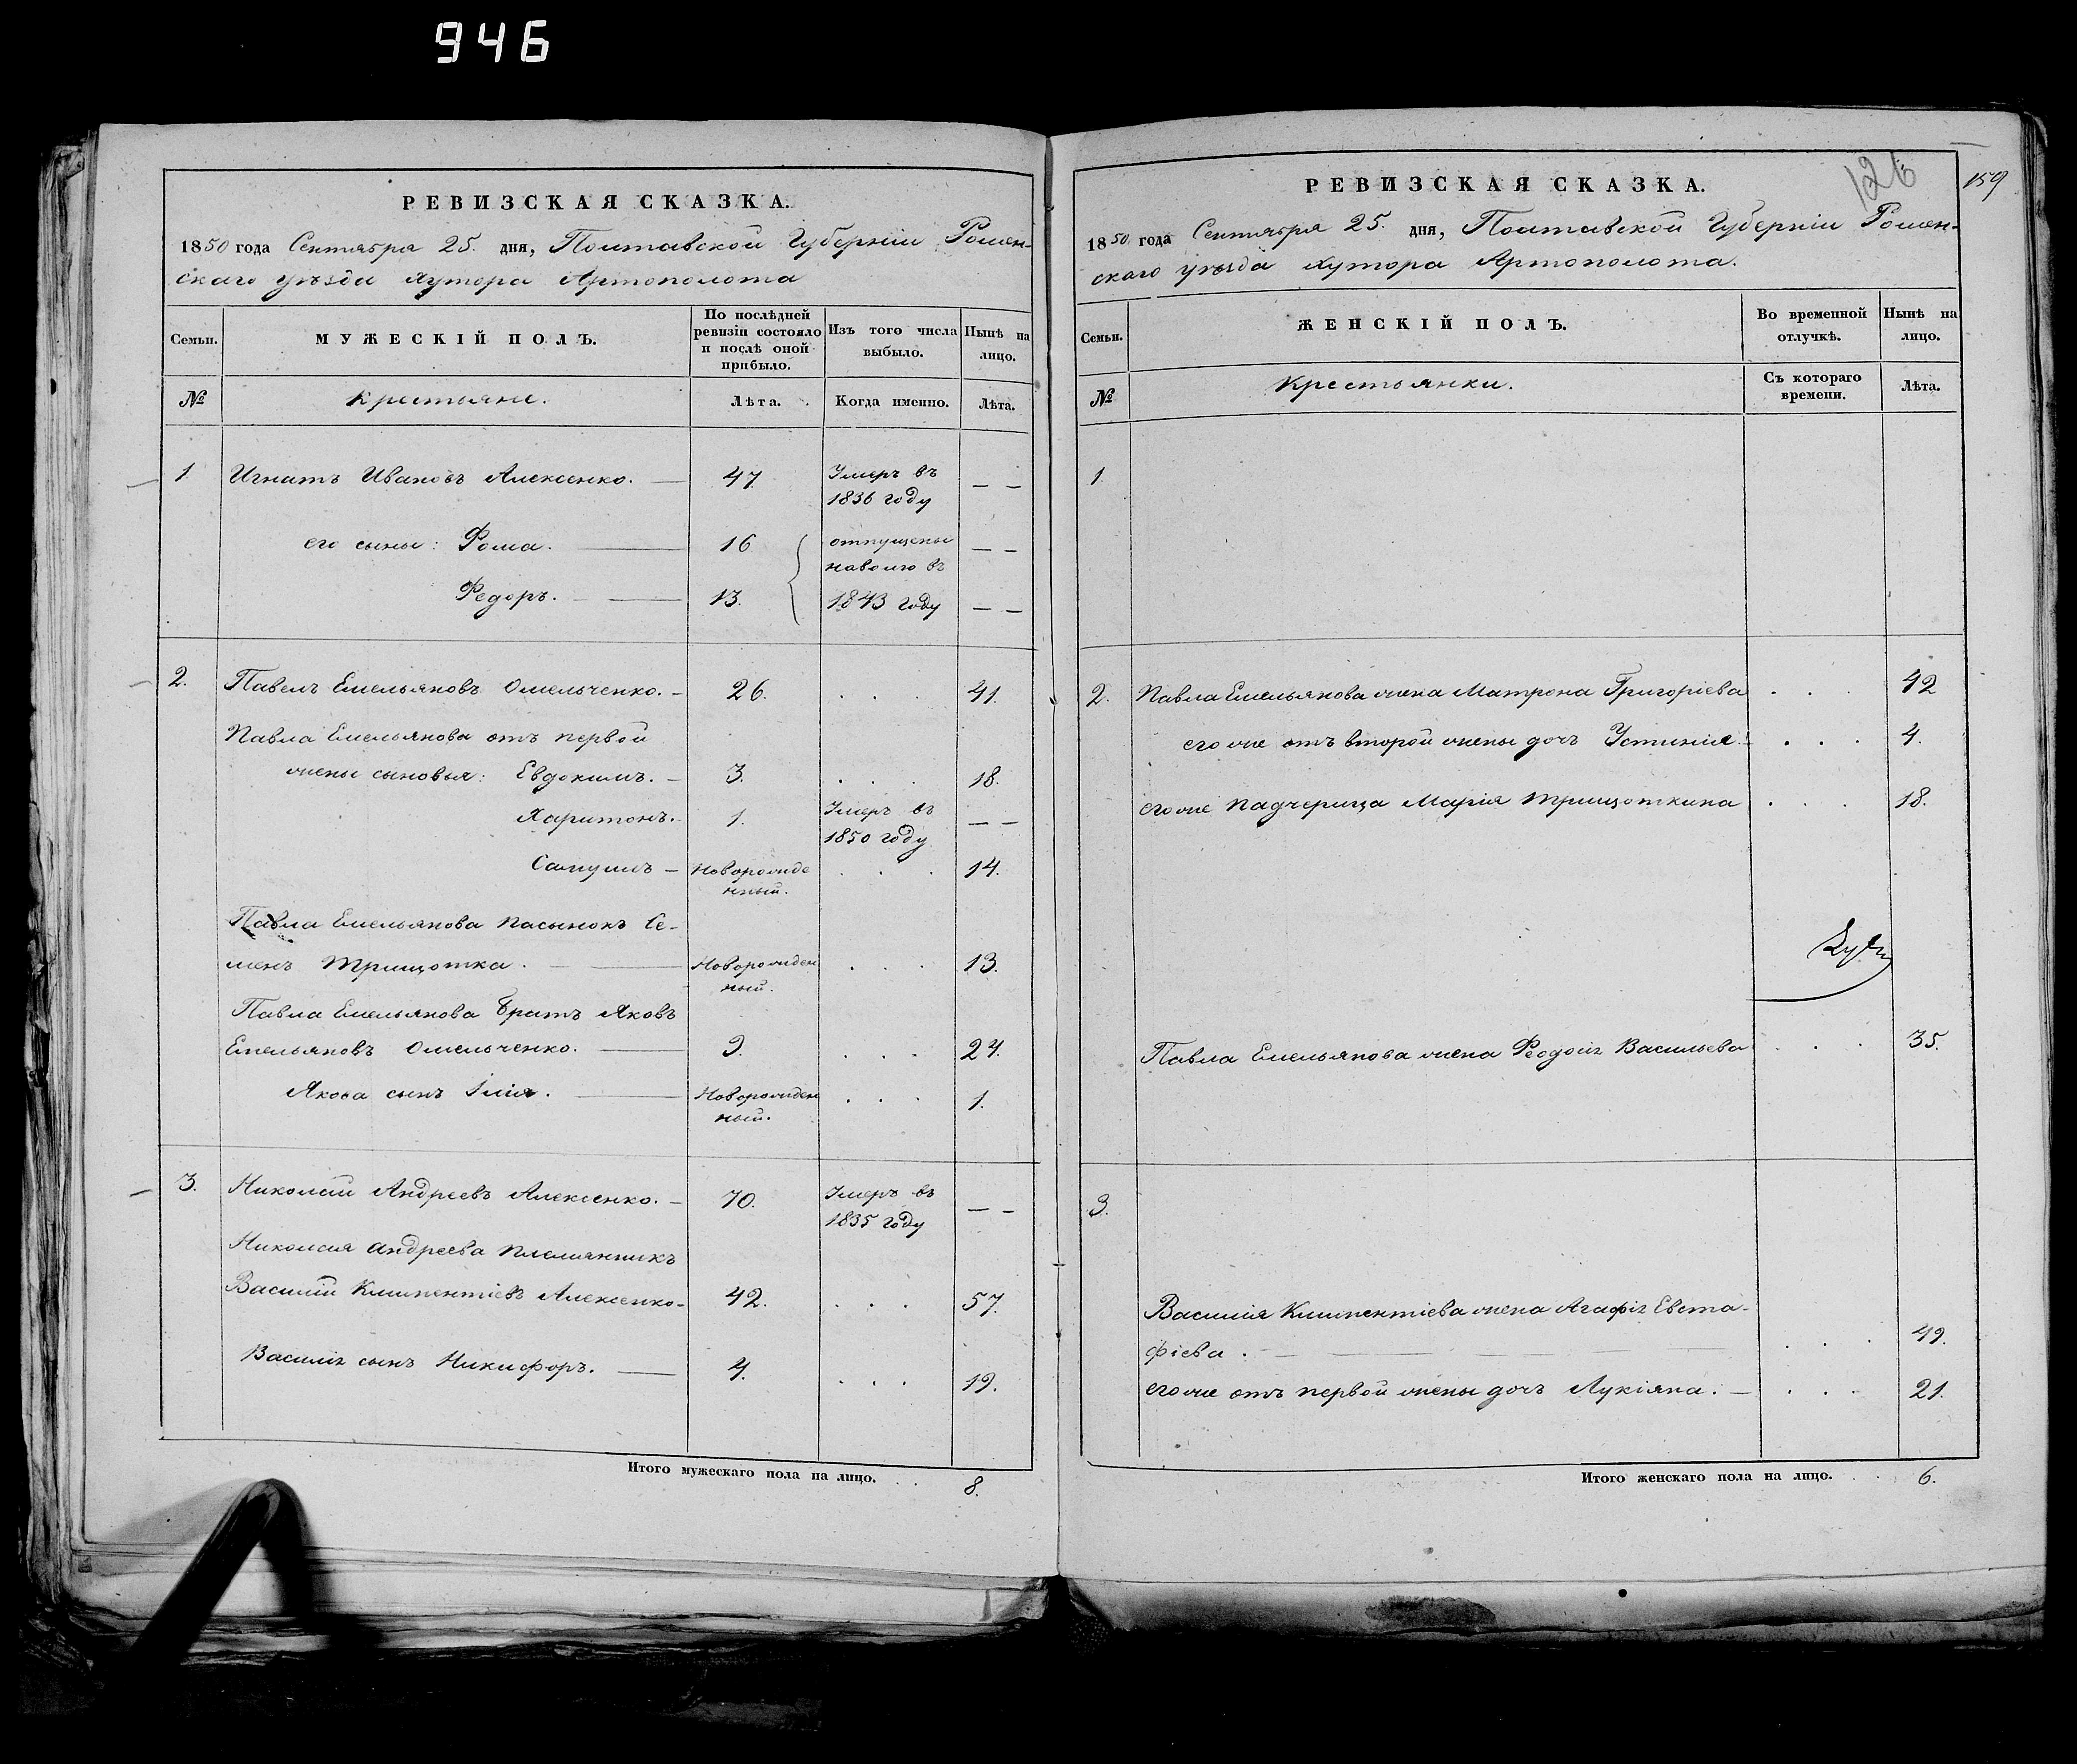 946
РЕВИЗСКАЯ СКАЗКА.
1850 года Сентября 25. дня, Полтавской Губерніи Ромен-
скаго уѣзда хутора Артополота
Семьи.
МУЖЕСКІЙ ПОЛЪ.
По послѣдней ревизіи состояло и послѣ оной прибыло.
Изъ того числа выбыло.
Нынѣ на лицо.
№
Крестьяне.
Лѣта.
Когда именно.
Лѣта.
1 Игнатъ Ивановъ Алексенко. 47 Умеръ въ — —
1836 году
его сыны: Фома. 16 отпущены — —
наволю въ
Федоръ. 13. 1843 году — —
2. Павелъ Емельяновъ Омельченко. 26. . . 41.
Павла Емельянова отъ первой
жены сыновья: Евдокимъ. 3. . . . 18.
Харитонъ. 1. Умеръ въ — —
1850 году
Самуилъ Новорожде . . . 14.
нный.
Павла Емельянова пасынокъ Се-
менъ Трищотка. Новорожден . . . 13.
ный.
Павла Емельянова братъ Яковъ
Емельяновъ Омельченко. 9. . . . 24.
Якова сынъ Илія. Новорожден . . . 1.
ный.
3. Николай Андреевъ Алексенко. 70. Умеръ въ — —
1835 году
Николая Андреева племянникъ
Василій Климентіевъ Алексенко 42. . . . 57.
Василія сынъ Никифоръ. 4. . . . 19.
Итого мужескаго пола на лицо. . . 8.
126
159
РЕВИЗСКАЯ СКАЗКА.
1850 года Сентября 25. дня, Полтавской Губерніи Ромен-
скаго уѣзда хутора Артополота.
Семьи.
ЖЕНСКІЙ ПОЛЪ.
Во временной отлучкѣ.
Нынѣ на лицо.
№
Крестьянки.
Съ котораго времени.
Лѣта.
1
2. Павла Емельянова жена Матрона Григоріева . . . 42
его же отъ второй жены дочь Устинія. . . . 4.
его же падчерица Марія Трищоткина . . . 18.
Павла Емельянова жена Феодосія Васильева . . . 35.
3.
Василія Климентіева жена Агафія Евста-
фіева. . . . 49.
его же отъ первой жены дочь Лукіяна. . . . 21.
Итого женскаго пола на лицо. . . 6.